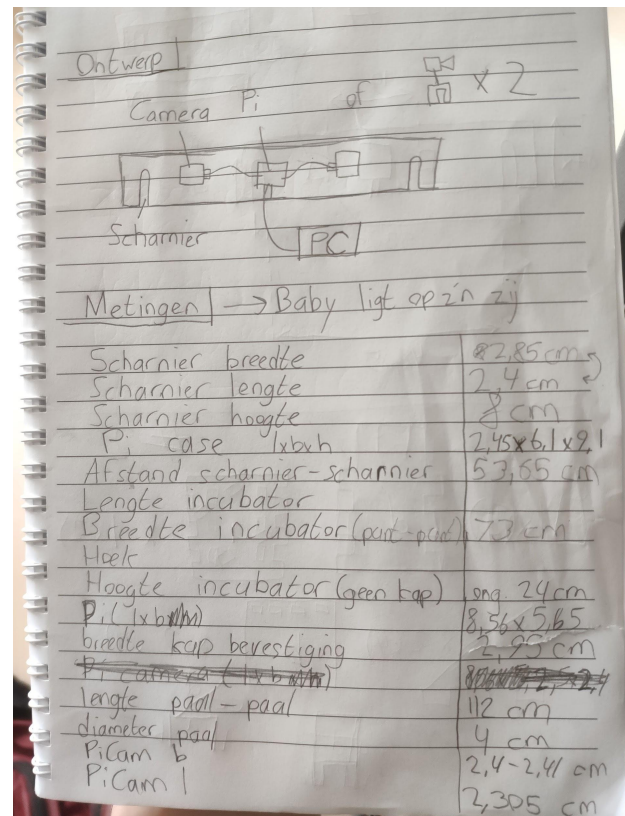 Ontwerp
Camera Pi of x 2
Scharnier PC
Metingen → Baby ligt op z'n zij
Scharnier breedte 2,85 cm
Scharnier lengte 2,4 cm
Scharnier hoogte 8 cm
Pi case lxbxh 2,45x6,1x9,1
Afstand scharnier-scharnier 53,65 cm
Lengte incubator
Breedte incubator (punt-punt) 73 cm
Hoek
Hoogte incubator (geen kap) ong. 24 cm
Pi (lxb) 8,56 x 5,65
breedte kap bevestiging 2,95 cm
lengte paal-paal 112 cm
diameter paal 4 cm
PiCam b 2,4-2,41 cm
PiCam l 2,305 cm